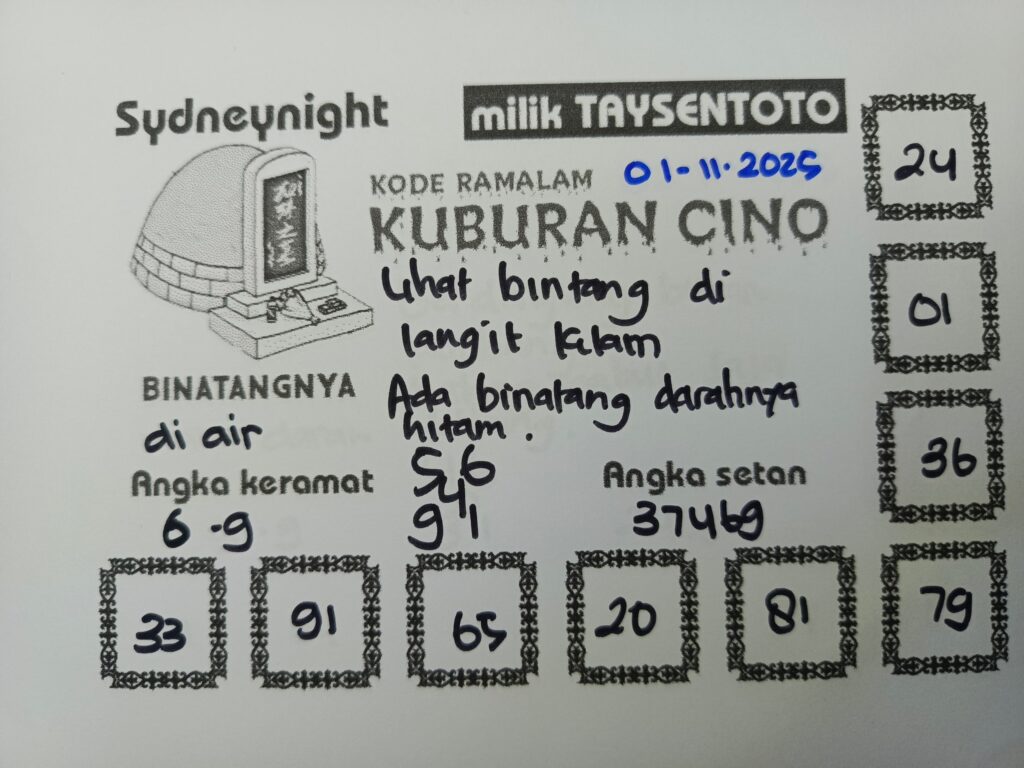 Sydneynight
milik TAYSENTOTO
KODE RAMALAM
01-11-2025
KUBURAN CINO
Lihat bintang di
langit kelam
Ada binatang darahnya
hitam.
BINATANGNYA
di air
Angka keramat
6 - 9
5 6
4
9 1
Angka setan
37469
24
01
36
33
91
65
20
81
79